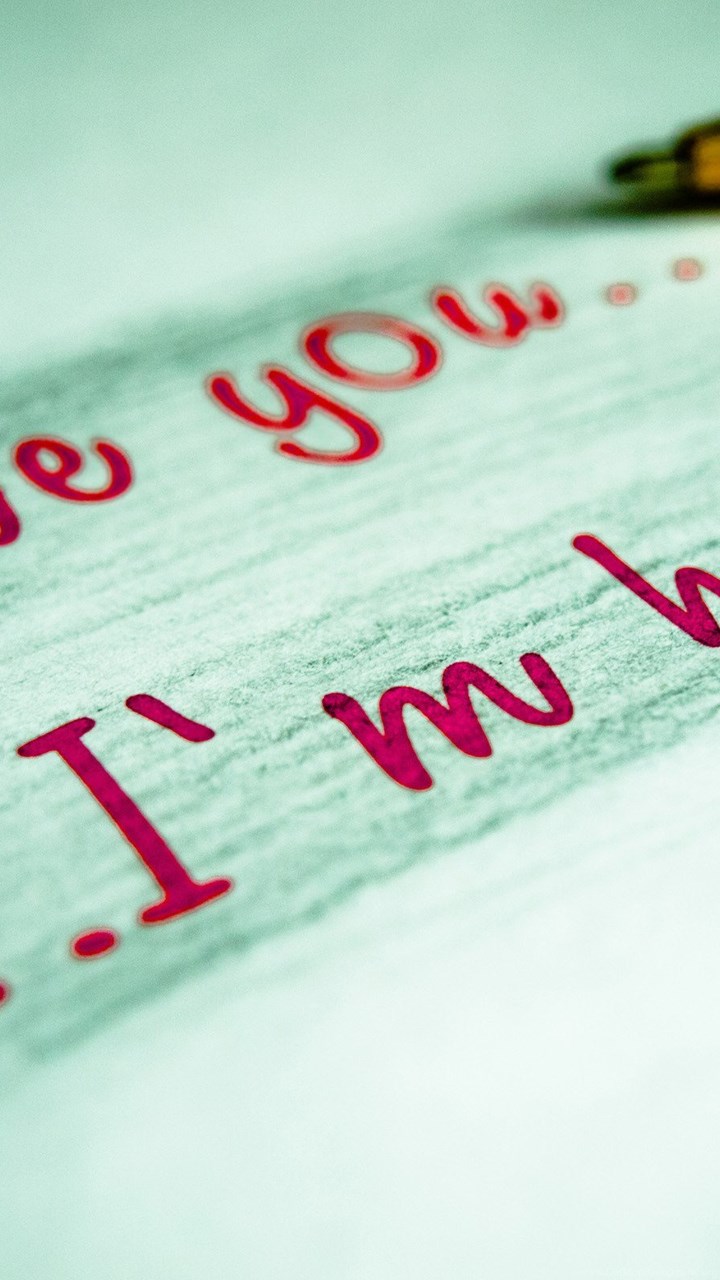 you..
..I'm